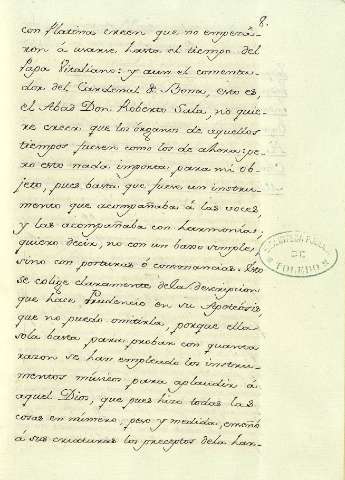 8.
con Platina creen que no empezá-
ron á usarse hasta el tiempo del
Papa Vitaliano: y aun el comenta-
dor del Cardenal de Bona, esto es
el Abad Don Roberto Sala, no quie-
re creer que los órganos de aquellos
tiempos fuesen como los de ahora: pe-
ro esto nada importa para mi ob-
jeto, pues basta que fuese un instru-
mento que acompañaba á las voces,
y las acompañaba con harmonías,
quiero decir, no con un baxo simple,
sino con posturas ó consonancias. Esto
se colige claramente de la descripcion
que hace Prudencio en su Apoteósis,
que no puedo omitirla, porque ella
sola basta para probar con quanta
razon se han empleado los instru-
mentos músicos para aplaudir á
aquel Dios, que pues hizo todas las
cosas en número, peso y medida, enseñó
á sus criaturas los preceptos dela har-
DE
TOLEDO